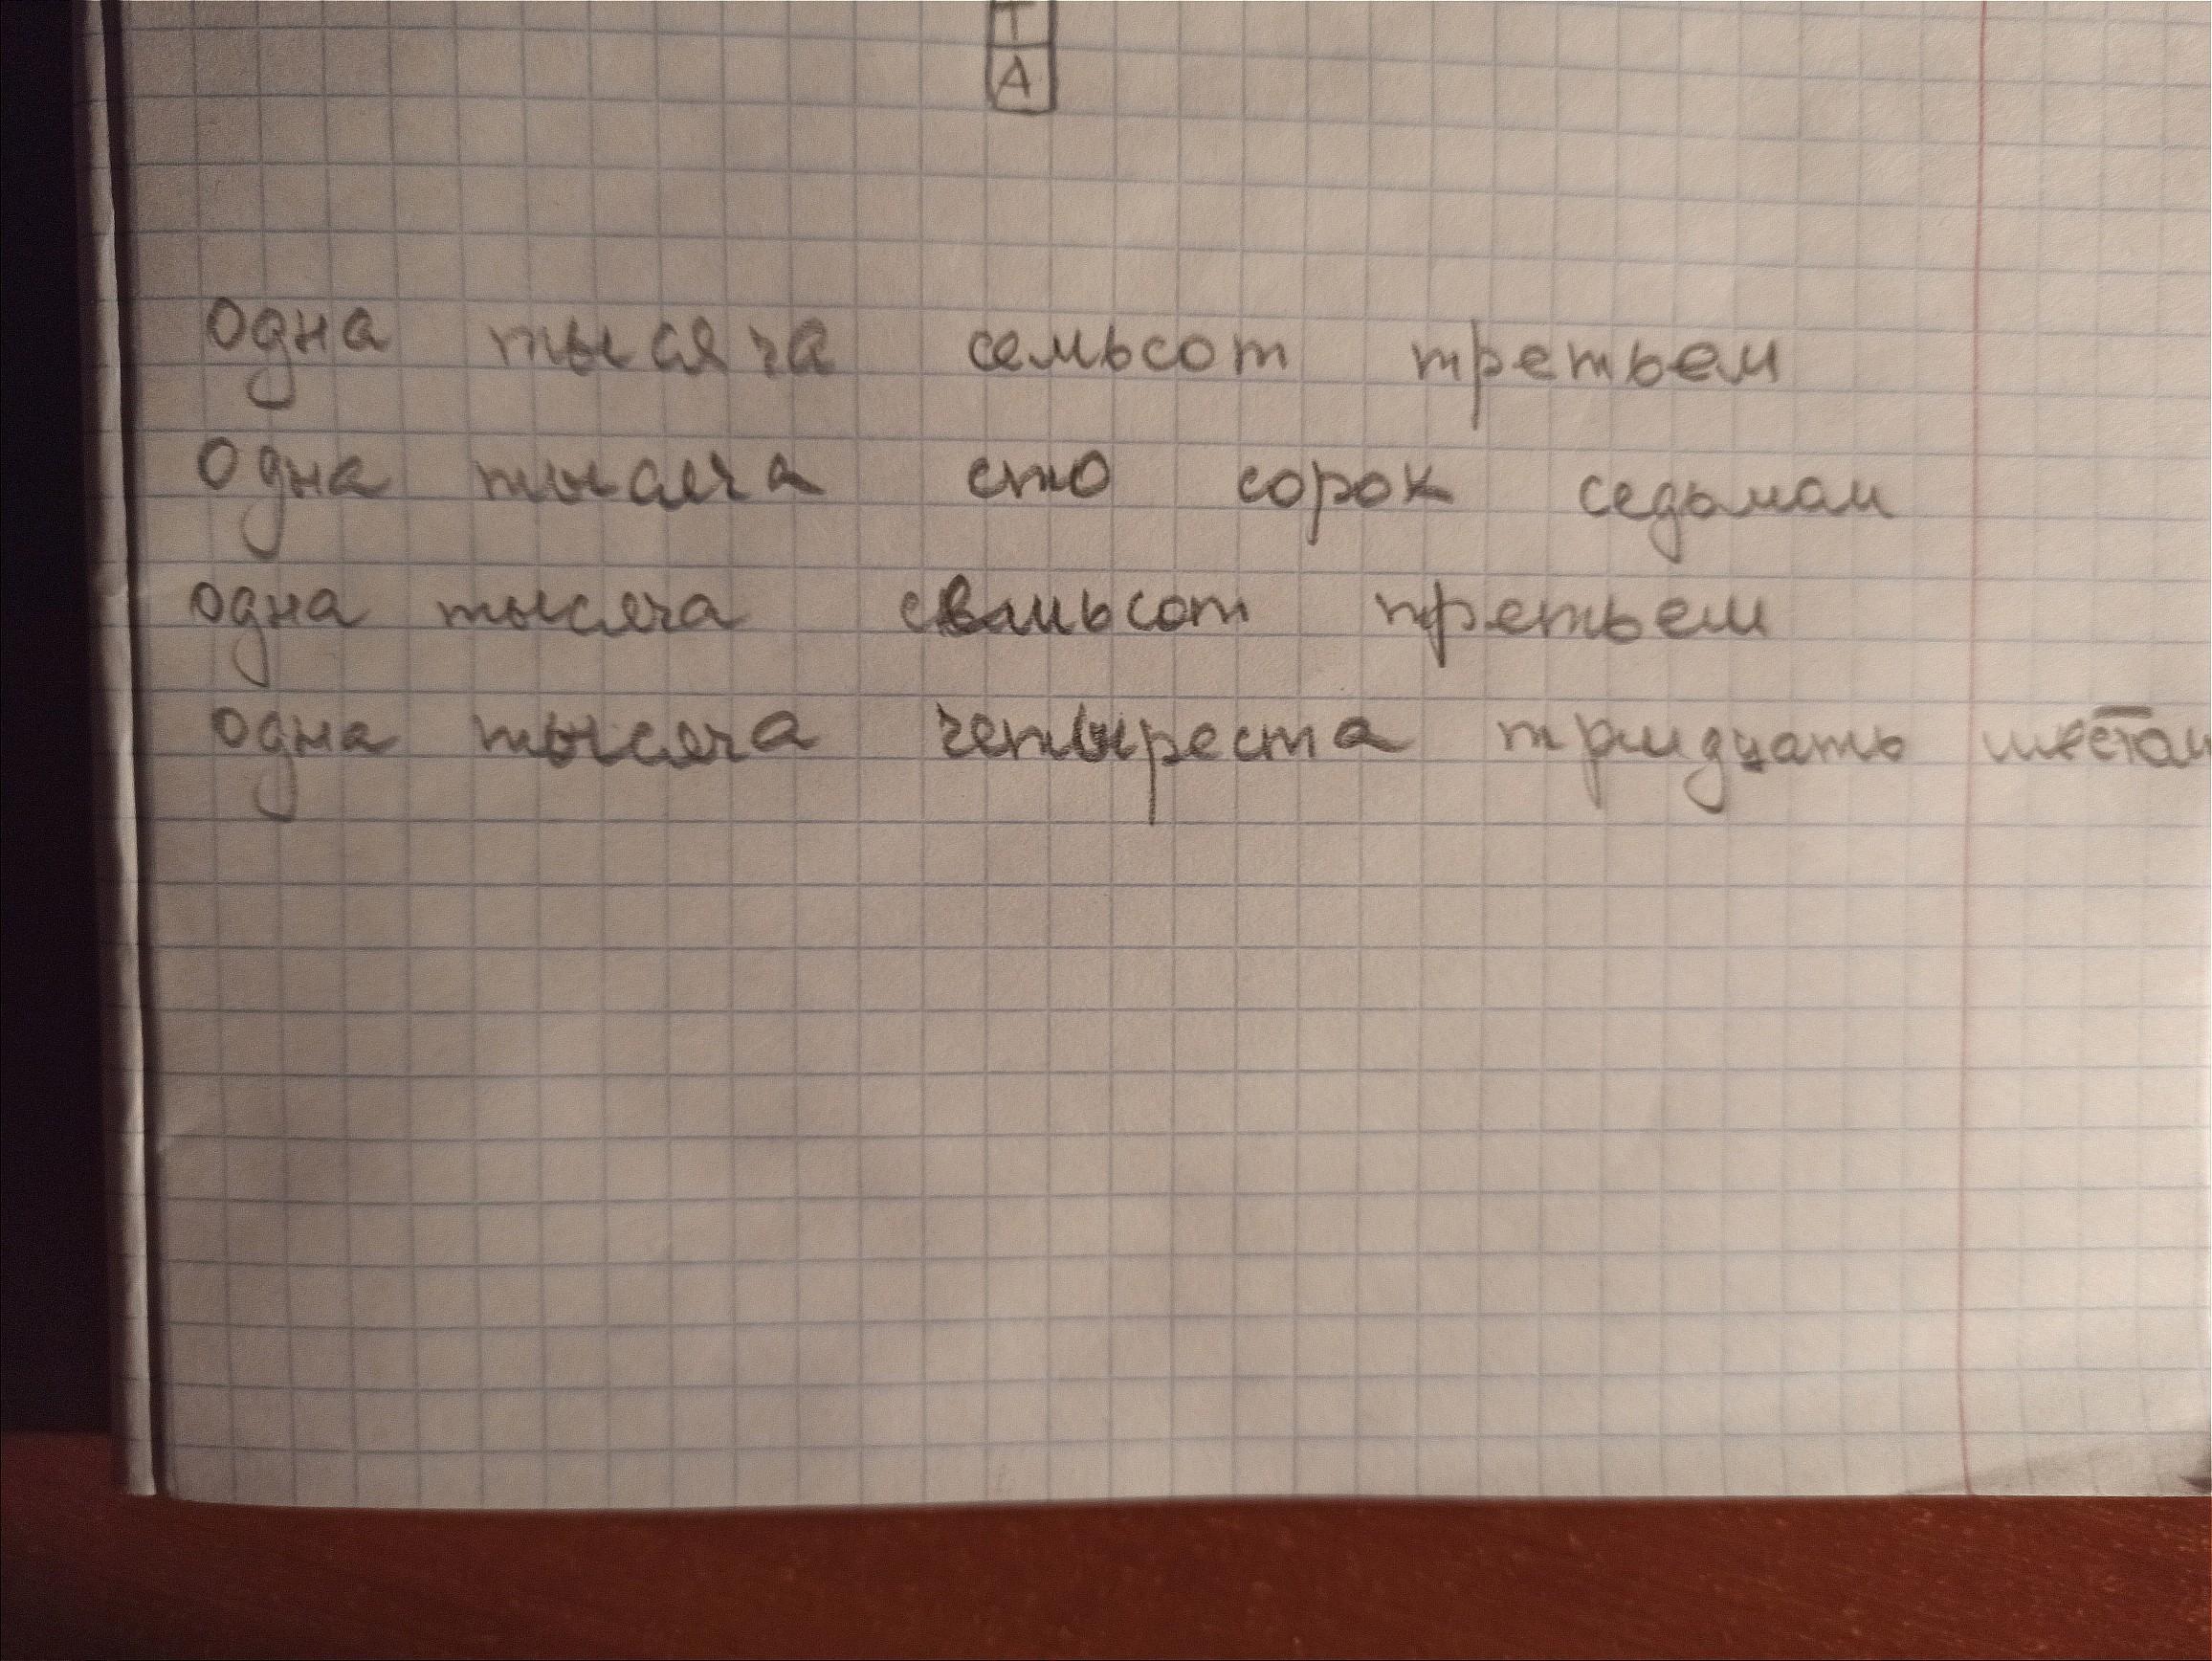 Т
А
одна тысяча семьсот третьем
одна тысяча сто сорок седьмом
одна тысяча семьсот третьем
одна тысяча четыреста тридцать шестом